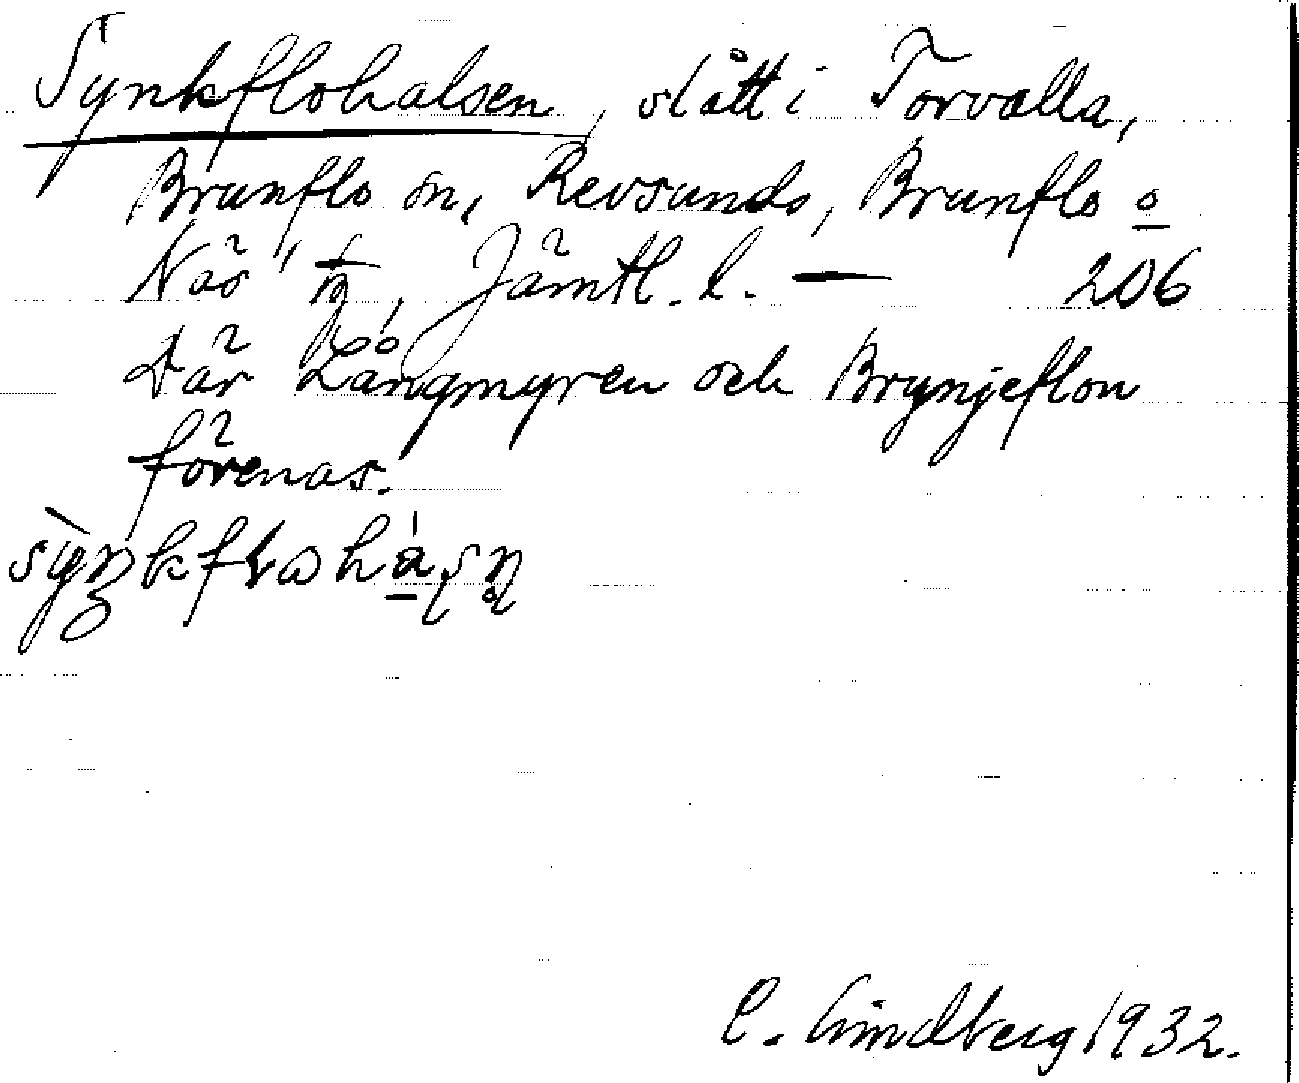 Synkflohalsen, slått i Torvalla,
Brunflo sn, Revsunds, Brunflo o
Näs tg, Jämtl. l. — 206
Där Långmyren och Brynjeflon
förenas.
C. Lindberg 1932.